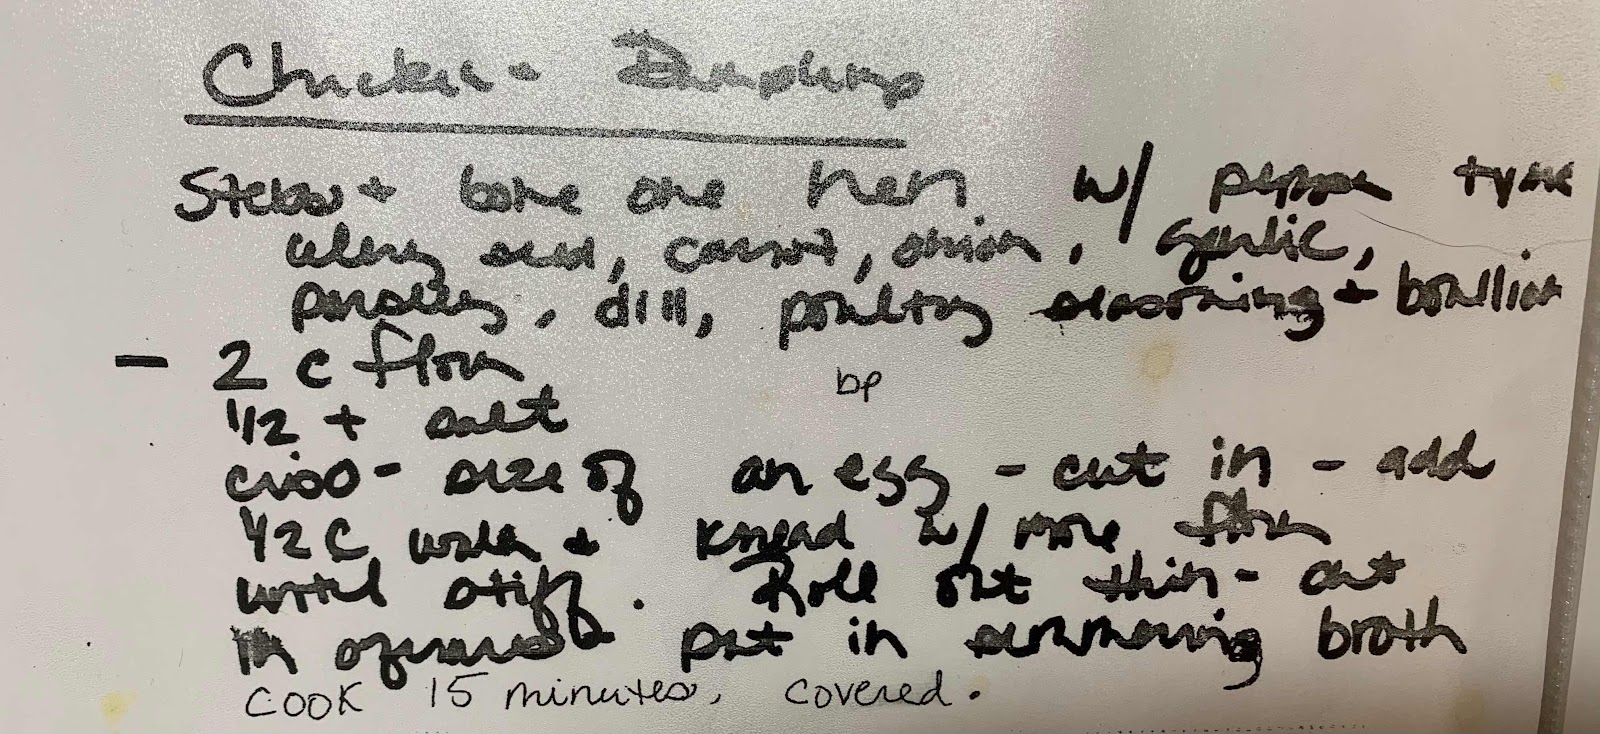 Chicken + Dumplings
Stew + bone one hen w/ pepper tyme
celery seed, carrot, onion, garlic,
parsley, dill, poultry seasoning + boullion
- 2 c flour
bp
1/2 t salt
crisco - size of an egg - cut in - add
1/2 c water + knead w/ more flour
until stiff. Roll out thin - cut
in squares put in simmering broth
COOK 15 minutes, covered.